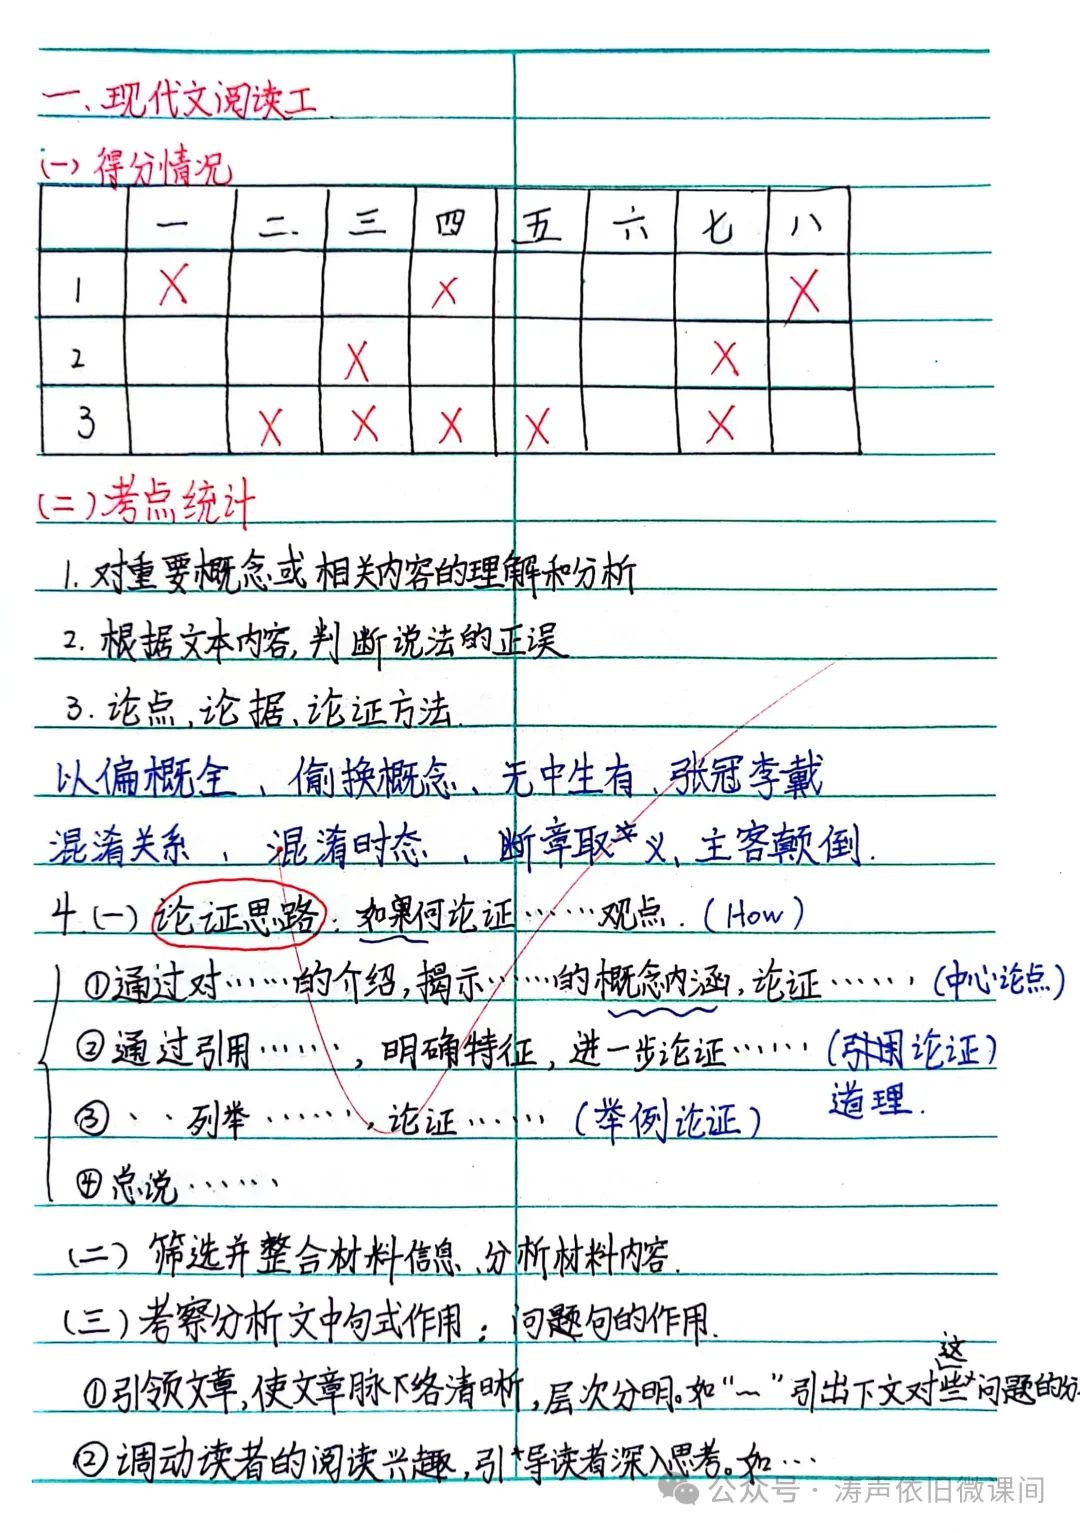 一、现代文阅读工
(一)得分情况
一 二. 三 四 五 六 七 八
1 X X X
2 X X
3 X X X X X
(二)考点统计
1. 对重要概念或相关内容的理解和分析
2. 根据文本内容,判断说法的正误
3. 论点、论据、论证方法.
以偏概全、偷换概念、无中生有、张冠李戴
混淆关系、混淆时态、断章取义、主客颠倒.
4.(一)论证思路:如果何论证……观点.(How)
①通过对……的介绍,揭示……的概念内涵,论证……(中心论点)
②通过引用……,明确特征,进一步论证……(引用论证)
道理.
③..列举……,论证……(举例论证)
④总说……
(二)筛选并整合材料信息、分析材料内容.
(三)考察分析文中句式作用:问题句的作用.
这
①引领文章,使文章脉络清晰,层次分明。如“~”引出下文对些问题的分
②调动读者的阅读兴趣,引导读者深入思考。如…
公众号·涛声依旧微课间